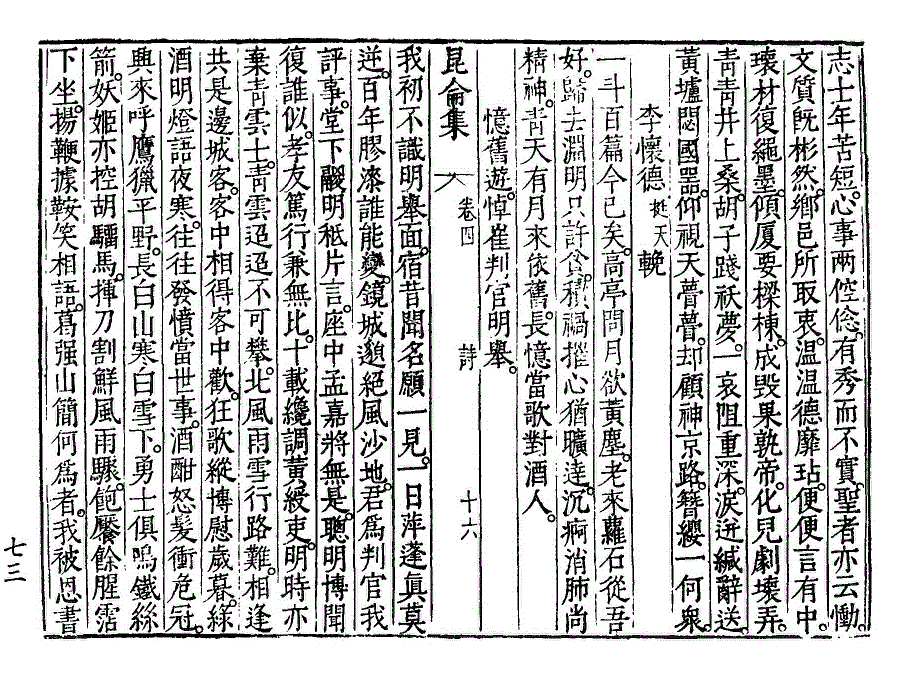 志十年苦短。心事兩倥傯。有秀而不實。聖者亦云慟。
文質既彬然。鄉邑所取衷。溫溫德靡玷。便便言有中。
瓌材復繩墨。傾厦要樑棟。成毀果孰帝。化兒劇壞弄。
青青井上桑。胡子踐祅夢。一哀阻重深。淚迸緘辭送。
黃壚悶國器。仰視天瞢瞢。却顧神京路。簪纓一何衆。
李懷德挺天輓
一斗百篇今已矣。高亭問月欲黃塵。老來蘿石從吾
好。歸去淵明只許貧。積禍摧心猶曠達。沉痾消肺尚
精神。靑天有月來依舊。長憶當歌對酒人。
憶舊遊。悼崔判官明擧。
昆侖集 卷四 詩 十六
我初不識明擧面。宿昔聞名願一見。一日萍蓬眞莫
逆。百年膠漆誰能變。鏡城邈絕風沙地。君爲判官我
評事。堂下嚴明秪片言。座中孟嘉將無是。聰明博聞
復誰似。孝友篤行兼無比。十載纔調黃綬吏。明時亦
棄靑雲士。靑雲迢迢不可攀。北風雨雪行路難。相逢
共是邊城客。客中相得客中歡。狂歌縱博慰歲暮。綠
酒明燈語夜寒。往往發憤當世事。酒酣怒髮衝危冠。
興來呼鷹獵平野。長白山寒白雪下。勇士俱鳴鐵絲
箭。妖姬亦控胡騮馬。揮刀割鮮風雨驟。飽饜餘腥霑
下坐。揚鞭據鞍笑相語。葛强山簡何爲者。我被恩書
七三